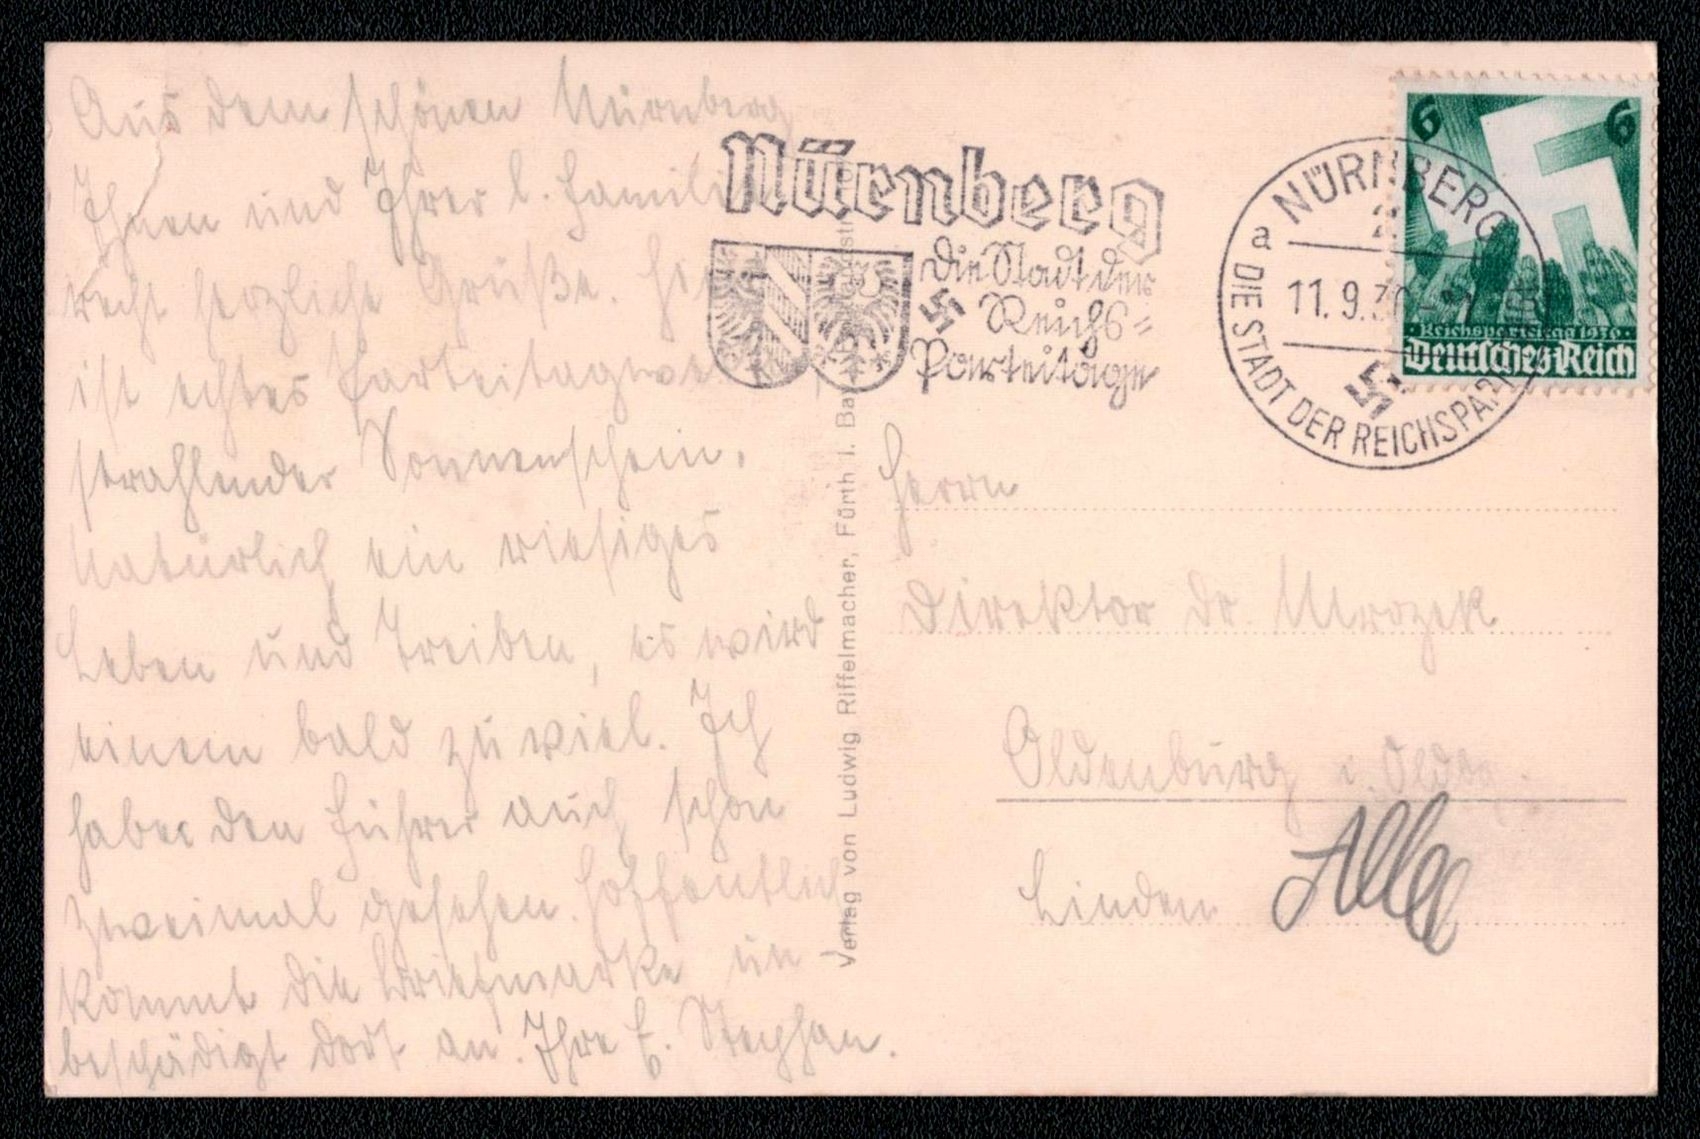 Aus dem schönen Nürnberg
Ihnen und Ihrer l. Famili
recht herzliche Grüße. Hier
ist echtes Parteitagwe
strahlender Sonnenschein.
Natürlich ein riesiges
Leben und Treiben, es wird
einem bald zu viel. Ich
habe den Führer auch schon
zweimal gesehen. Hoffentlich
kommt die Briefmarke un
beschädigt dort an. Ihre E. Stephan.
Nürnberg
Die Stadt der
Reichs-
Parteitage
NÜRNBERG
2
a
11.9.36
DIE STADT DER REICHSPA
6 6
Reichsparteitag 1936
Deutsches Reich
Verlag von Ludwig Riffelmacher, Fürth i. Bay
Herrn
Direktor Dr. Mrozek
Oldenburg i. Oldbg.
Linden Allee